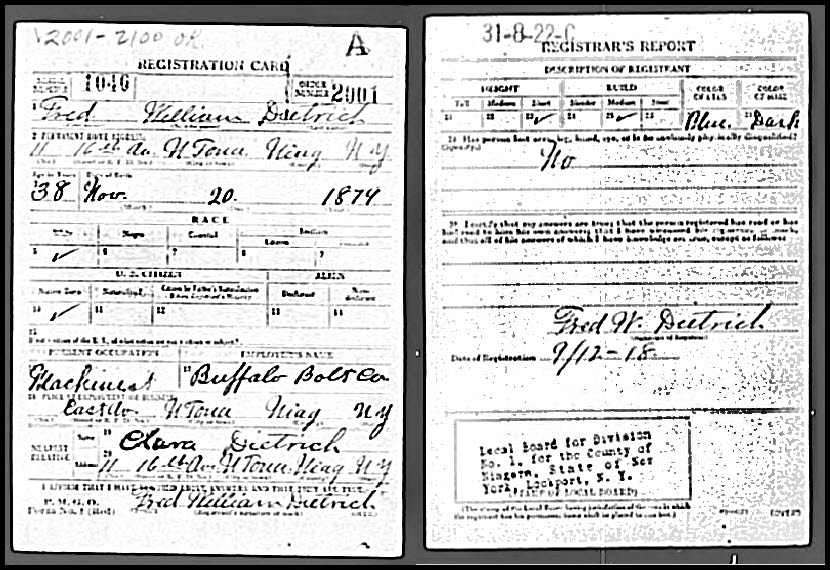 2001-2100 OK
A
REGISTRATION CARD
SERIAL NUMBER 1040 ORDER NUMBER 2001
1 Fred William Dietrich
2 PERMANENT HOME ADDRESS:
11 16th Av. N Tona Niag N Y
Age in Years Date of Birth
38 Nov. 20. 1879
RACE
White Negro Oriental Indian
5 ✓ 6 7 8 9
U. S. CITIZEN ALIEN
Native Born Naturalized Citizen by Father's Naturalization Before Registrant's Majority Declarant Non-declarant
10 ✓ 11 12 13 14
15
PRESENT OCCUPATION EMPLOYER'S NAME
Machinist 17 Buffalo Bolt Co
18 PLACE OF EMPLOYMENT OR BUSINESS
East Av. N Tona Niag N Y
NEAREST RELATIVE Name 19 Clara Dietrich
Address 20 11 16th Av. N Tona Niag N Y
I AFFIRM THAT I HAVE VERIFIED ABOVE ANSWERS AND THAT THEY ARE TRUE
P. M. G. O.
Form No. 1 (Red) Fred William Dietrich
31-8-22-C
REGISTRAR'S REPORT
DESCRIPTION OF REGISTRANT
HEIGHT BUILD COLOR OF EYES COLOR OF HAIR
Tall Medium Short Slender Medium Stout
21 22 23 ✓ 24 25 ✓ 26 Blue Dark
29 Has person lost arm, leg, hand, eye, or is he obviously physically disqualified?
(Specify.)
No
30 I certify that my answers are true; that the person registered has read or has
had read to him his own answers; that I have witnessed his signature or mark,
and that all of his answers of which I have knowledge are true, except as follows:
Fred W. Dietrich
(Signature of Registrar)
Date of Registration 9/12-18
Local Board for Division
No. 1, for the County of
Niagara, State of New
York, Lockport, N. Y.
(STAMP OF LOCAL BOARD)
(The stamp of the Local Board having jurisdiction of the area in which
the registrant has his permanent home shall be placed in this box.)
(OVER)